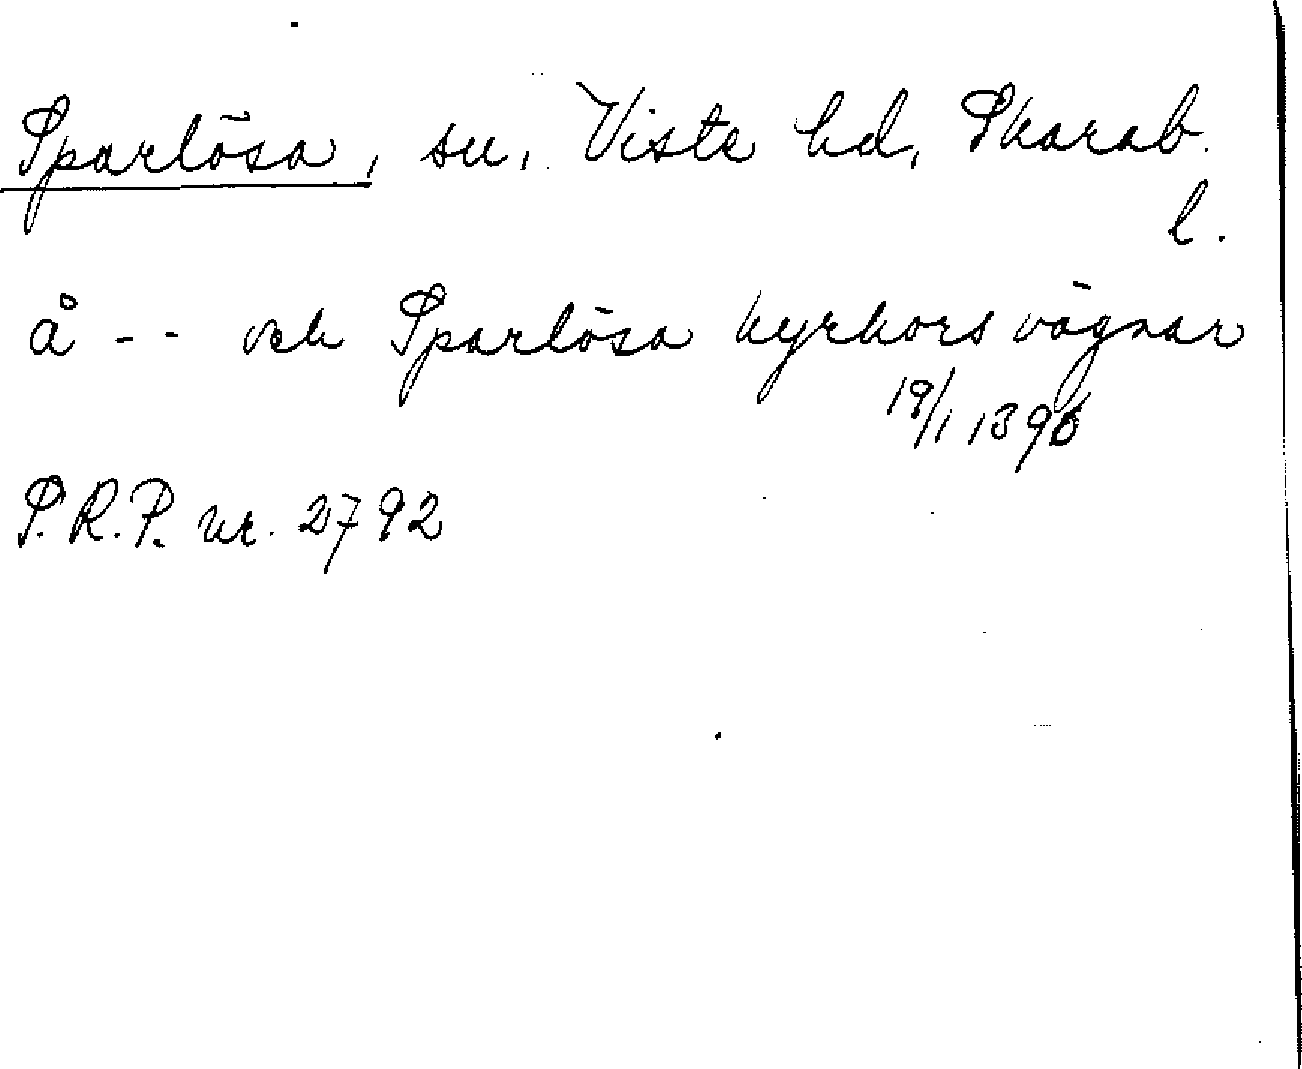 Sparlösa, sn, Viste hd, Skarab.
l.
å -- och Sparlösa kyrkors vägnar
19/1 1396
S.R.P. nr. 2792